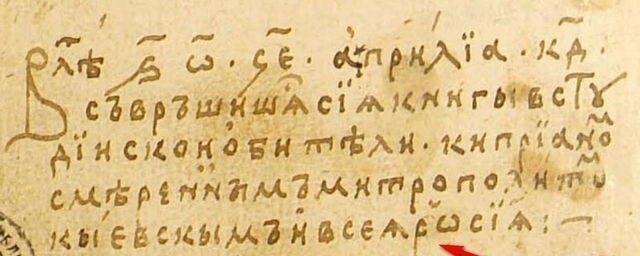 В лⷮѣ ҂ѕ҃ ѡ҃ · ҁ҃е · априлїа · к҃д ·
съвръшишѧ сїѧ книгы в стѹ
дїискои обитѣли · кипрїаноⷨ
смѣреннымъ митрополитоⷨ
кыевскымъ и всеѧ рѡсїѧ : —